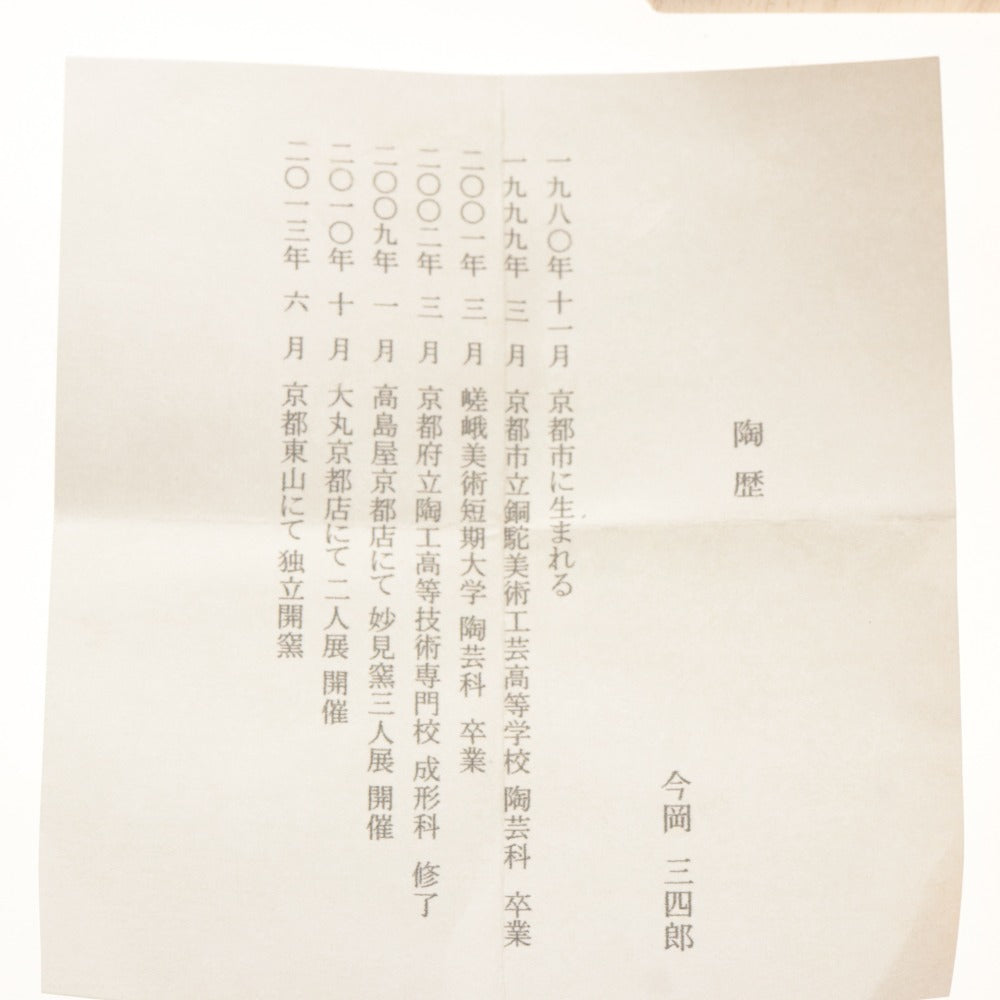 陶歴
今岡 三四郎
一九八〇年十一月 京都市に生まれる
一九九九年 三 月 京都市立銅駝美術工芸高等学校 陶芸科 卒業
二〇〇一年 三 月 嵯峨美術短期大学 陶芸科 卒業
二〇〇二年 三 月 京都府立陶工高等技術専門校 成形科 修了
二〇〇九年 一 月 高島屋京都店にて 妙見窯三人展 開催
二〇一〇年 十 月 大丸京都店にて 二人展 開催
二〇一三年 六 月 京都東山にて 独立開窯